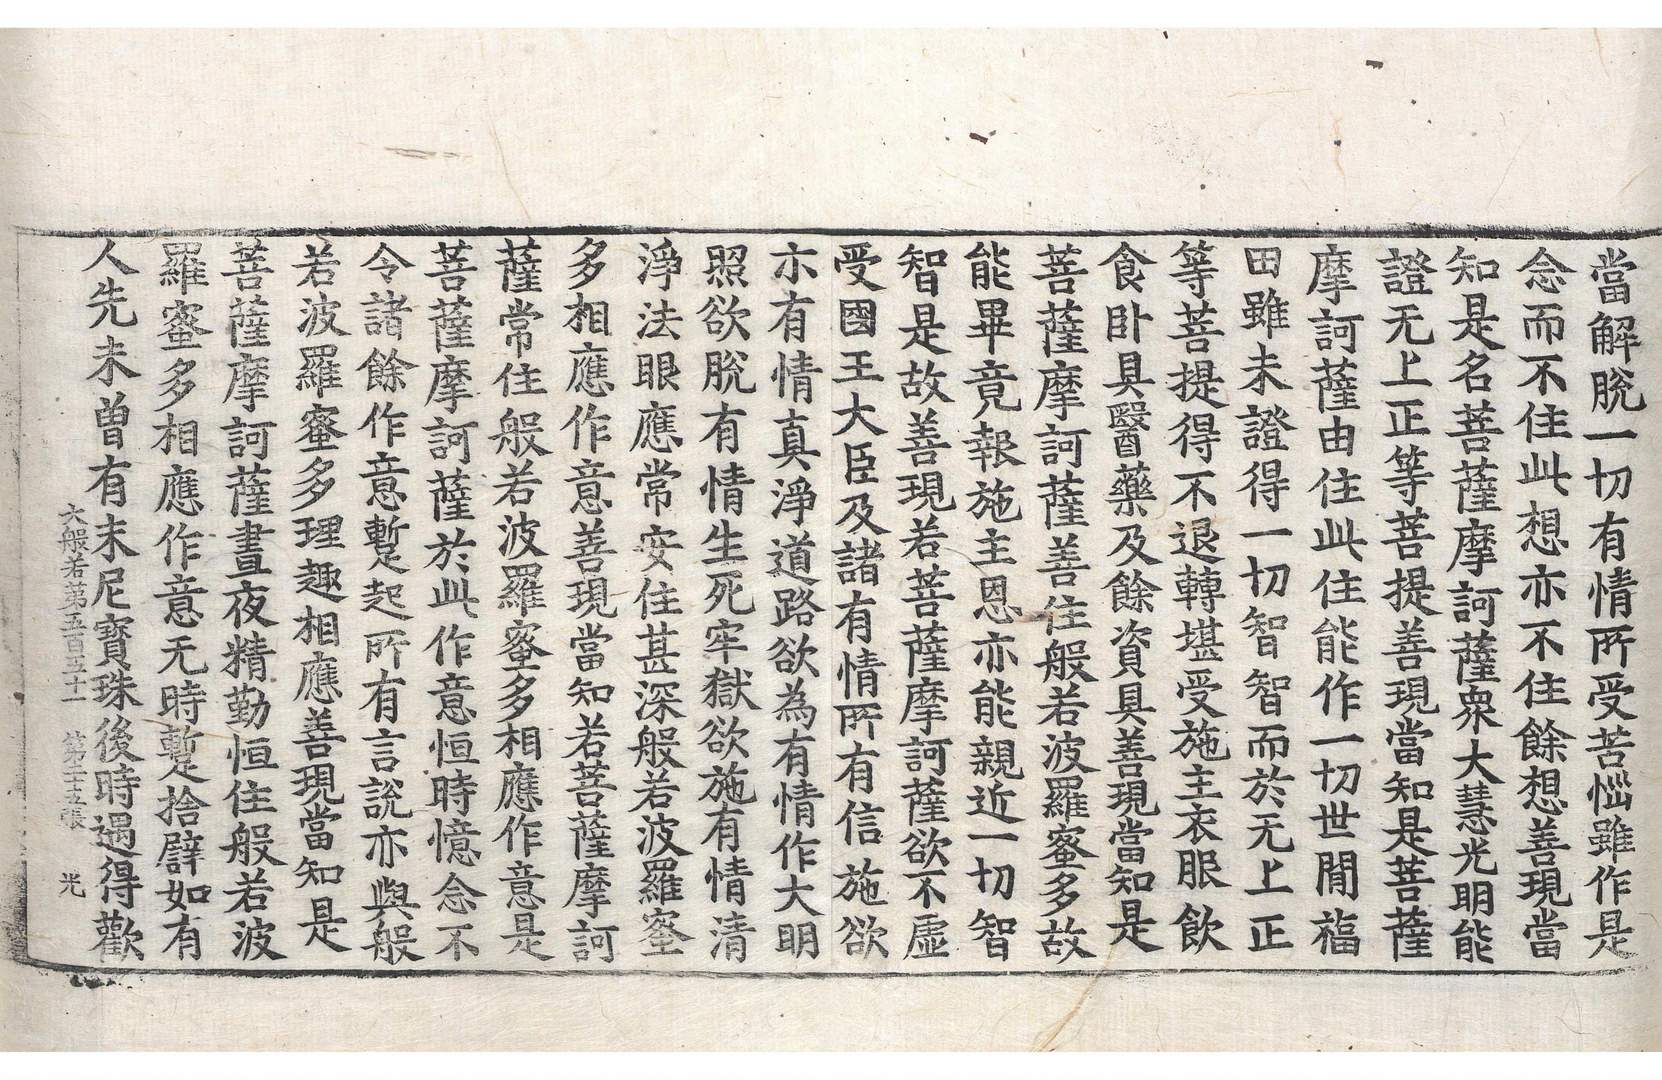 當解脫一切有情所受苦惱雖作是
念而不住此想亦不住餘想善現當
知是名菩薩摩訶薩衆大慧光明能
證无上正等菩提善現當知是菩薩
摩訶薩由住此住能作一切世閒福
田雖未證得一切智智而於无上正
等菩提得不退轉堪受施主衣服飮
食卧具醫藥及餘資具善現當知是
菩薩摩訶薩善住般若波羅蜜多故
能畢竟報施主恩亦能親近一切智
智是故善現若菩薩摩訶薩欲不虛
受國王大臣及諸有情所有信施欲
示有情真淨道路欲為有情作大明
照欲脫有情生死牢獄欲施有情清
淨法眼應常安住甚深般若波羅蜜
多相應作意善現當知若菩薩摩訶
薩常住般若波羅蜜多相應作意是
菩薩摩訶薩於此作意恒時憶念不
令諸餘作意暫起所有言說亦與般
若波羅蜜多理趣相應善現當知是
菩薩摩訶薩晝夜精勤恒住般若波
羅蜜多相應作意无時暫捨譬如有
人先未曾有末尼寶珠後時遇得歡
大般若第五百五十一 第二十五張 光